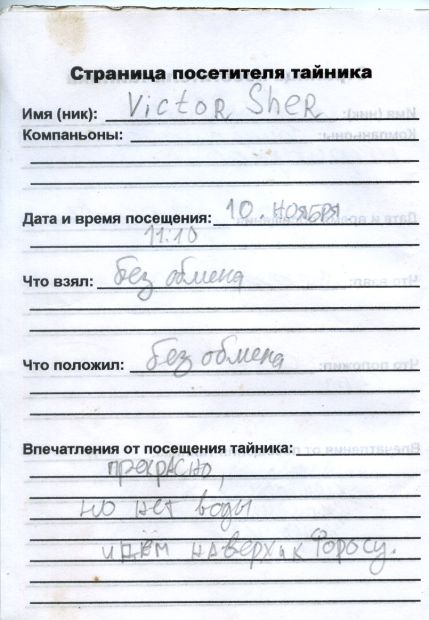 Страница посетителя тайника
Имя (ник): Victor Sher
Компаньоны:
Дата и время посещения: 10. ноября
11:10
Что взял: без обмена
Что положил: без обмена
Впечатления от посещения тайника:
прекрасно,
но нет воды
идём наверх к Форосу.